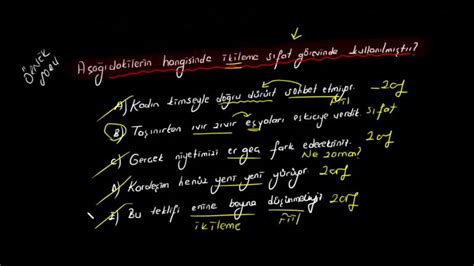 ÖRNEK SORU
Aşağıdakilerin hangisinde ikileme sıfat görevinde kullanılmıştır?
A) Kadın kimseyle doğru dürüst sohbet etmiyor. Zarf
Fiil
B) Taşınırken ıvır zıvır eşyaları eskiciye verdik. sıfat
C) Gerçek niyetimizi er geç fark edecektir. Zarf
Ne zaman?
D) Kardeşim henüz yeni yeni yürüyor. Zarf
E) Bu teklifi enine boyna düşünmeliyiz. Zarf
ikileme Fiil